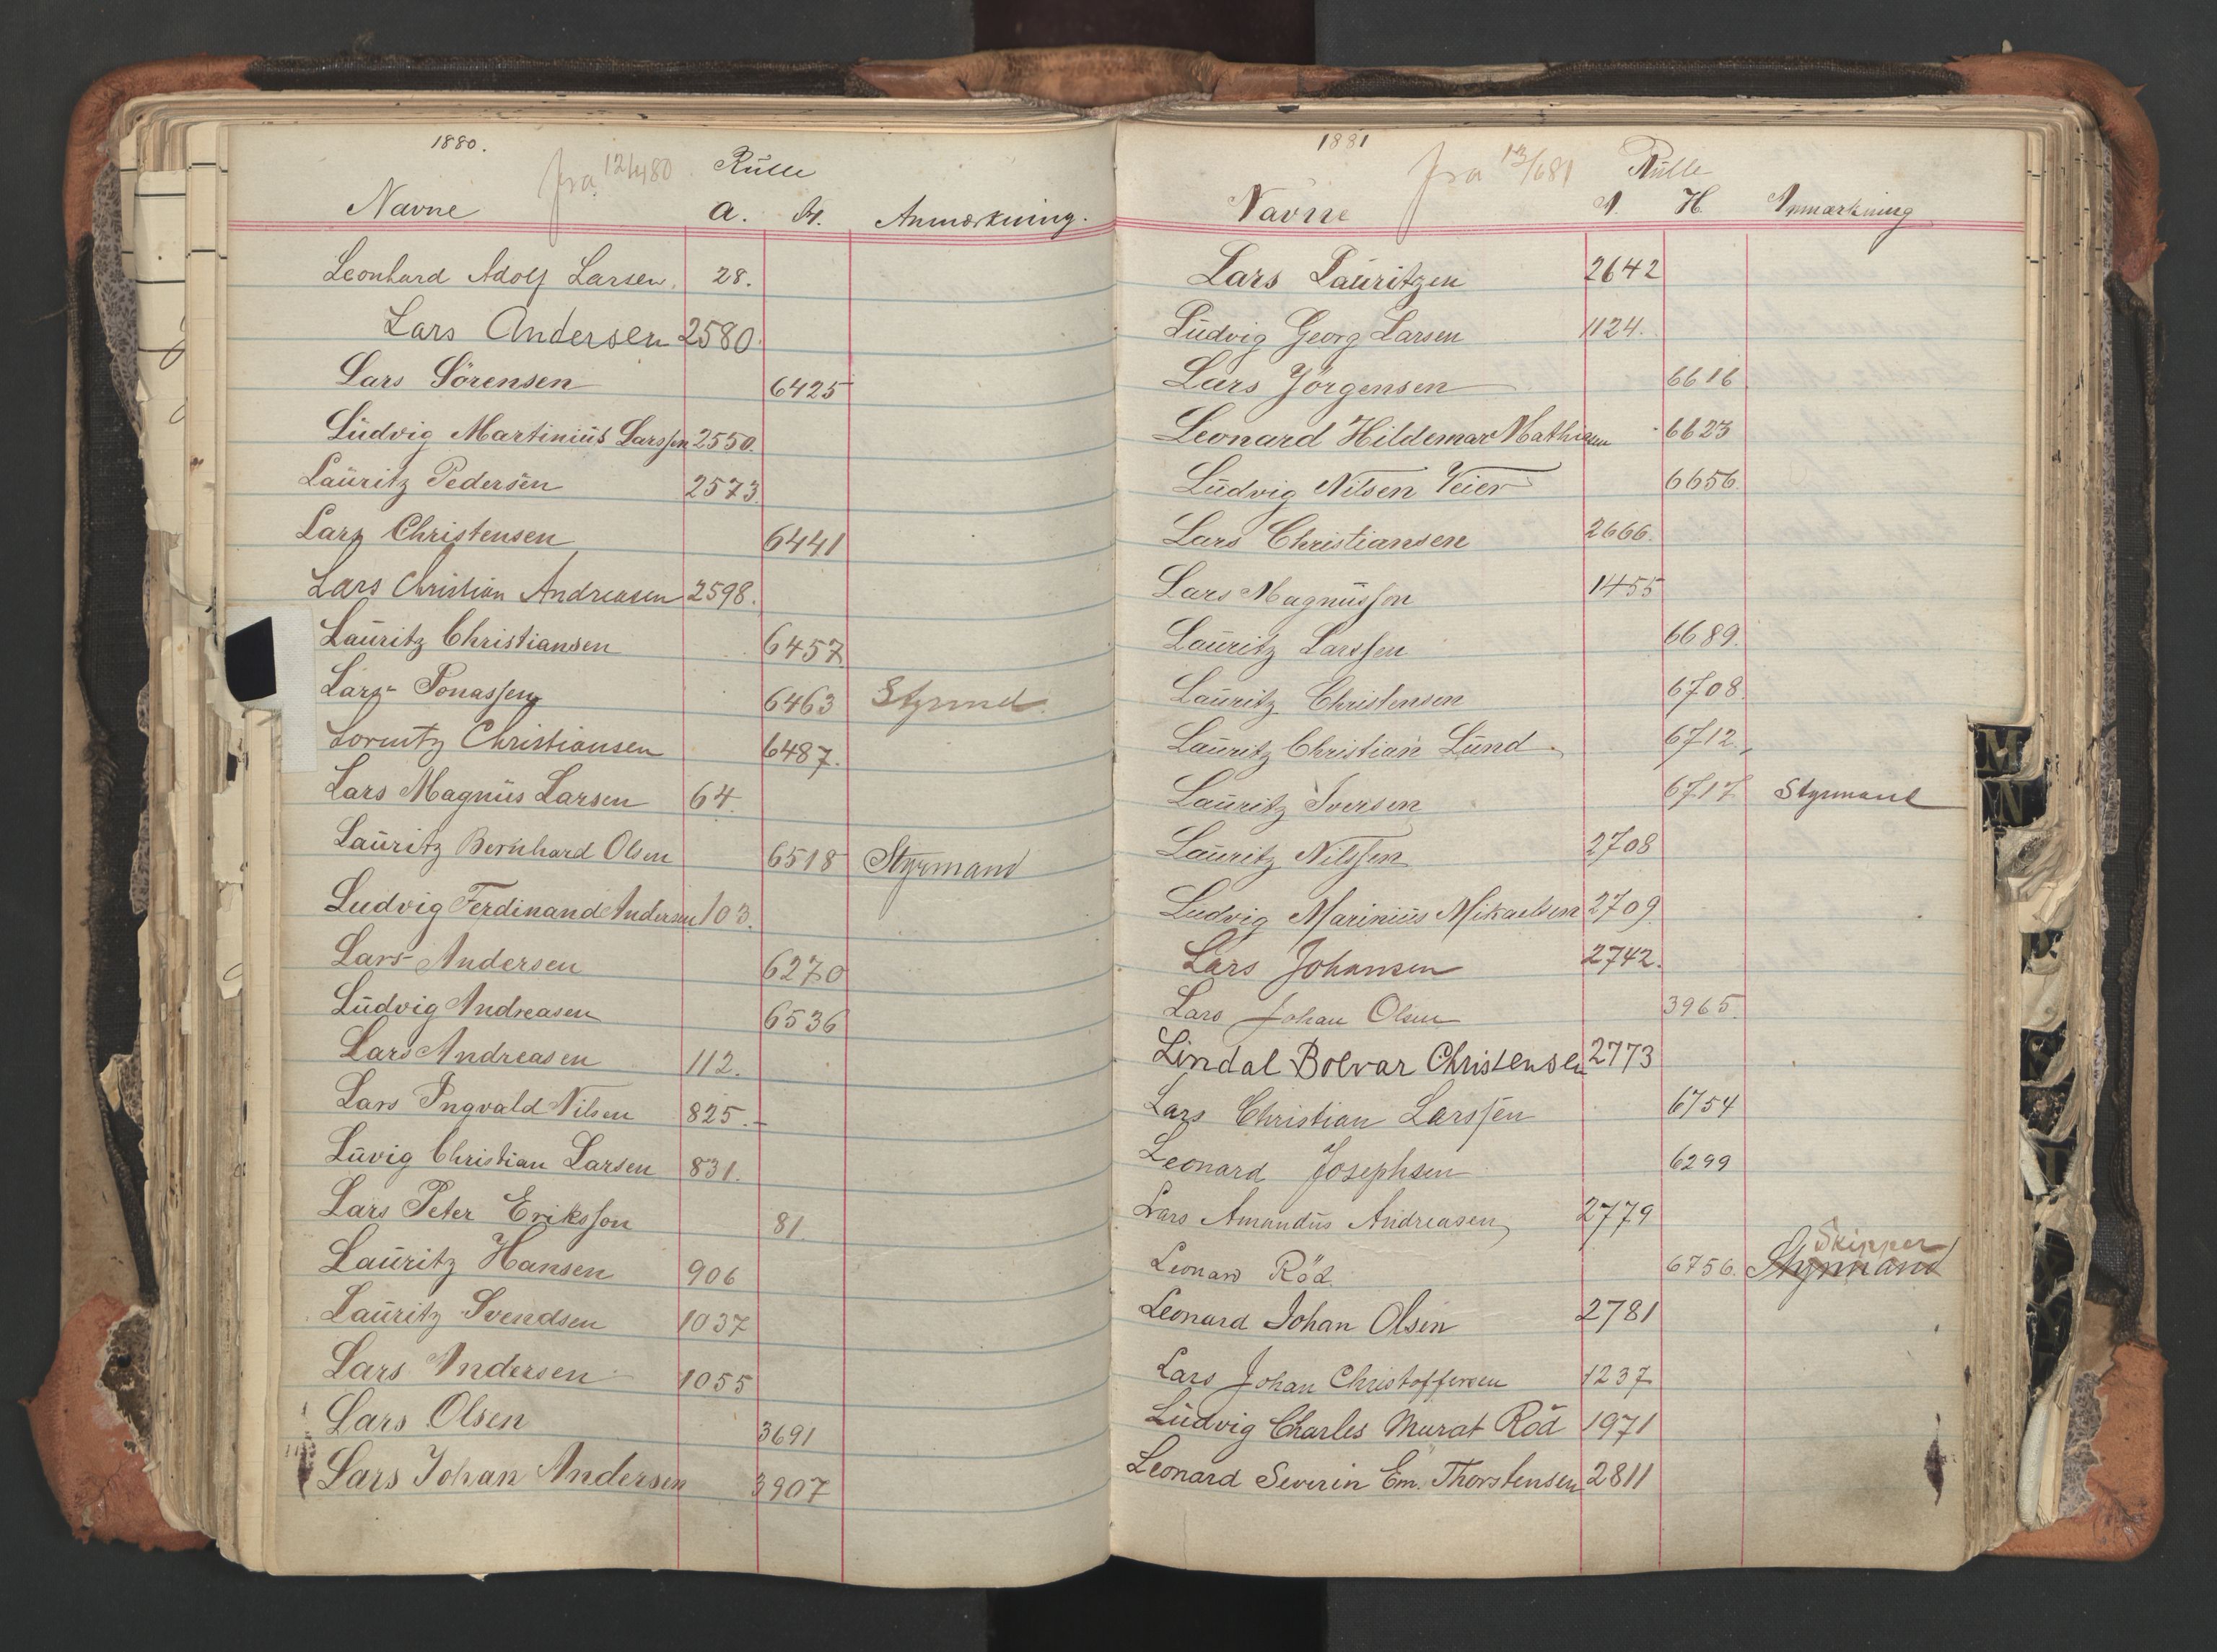 1880.
fra 12/4 80 Rülle
Navne A. H. Anmærkning.
Leonhard Adolf Larsen. 28.
Lars Andersen 2580.
Lars Sörensen 6425
Lüdvig Martiniüs Larssen 2550.
Laüritz Pedersen 2573
Lars Christensen 6441
Lars Christian Andreasen 2598.
Laüritz Christiansen 6457.
Lars Jonassen 6463 Styrmd.
Lorentz Christiansen 6487.
Lars Magnüs Larsen 64.
Laüritz Bernhard Olsen 6518 Styrmand
Ludvig Ferdinand Andersen 103.
Lars Andersen 6270
Lüdvig Andreasen 6536
Lars Andreasen 112.
Lars Ingvald Nilsen 825.-
Lüvig Christian Larsen 831.
Lars Peter Eriksson 81.
Laüritz Hansen 906
Laüritz Svendsen 1037
Lars Andersen 1055
Lars Olsen 3691
Lars Johan Andersen 3907
1881
fra 13/6 81 Rülle
Navne A. H. Anmærkning
Lars Laüritzen 2642
Lüdvig Georg Larsen 1124.
Lars Jörgensen 6616
Leonard Hildemar Mathisen 6623
Lüdvig Nilsen Veier 6656.
Lars Christiansen 2666.
Lars Magnüsson 1455
Laüritz Larssen 6689.
Laüritz Christensen 6708.
Laüritz Christian Lünd 6712.
Laüritz Iversen 6717 Styrmand
Laüritz Nilssen 2708
Lüdvig Mariniüs Mikaelsen 2709.
Lars Johansen 2742.
Lars Johan Olsen 3965.
Lindal Bolvar Christensen 2773
Lars Christian Larssen 6754
Leonard Josephsen 6299
Lars Amandüs Andreasen 2779
Skipper
Leonard Röd. 6756. Styrmand
Leonard Johan Olsen 2781
Lars Johan Christoffersen 1237
Lüdvig Charles Murat Röd 1971
Leonard Severin Em. Thorstensen 2811
M
N